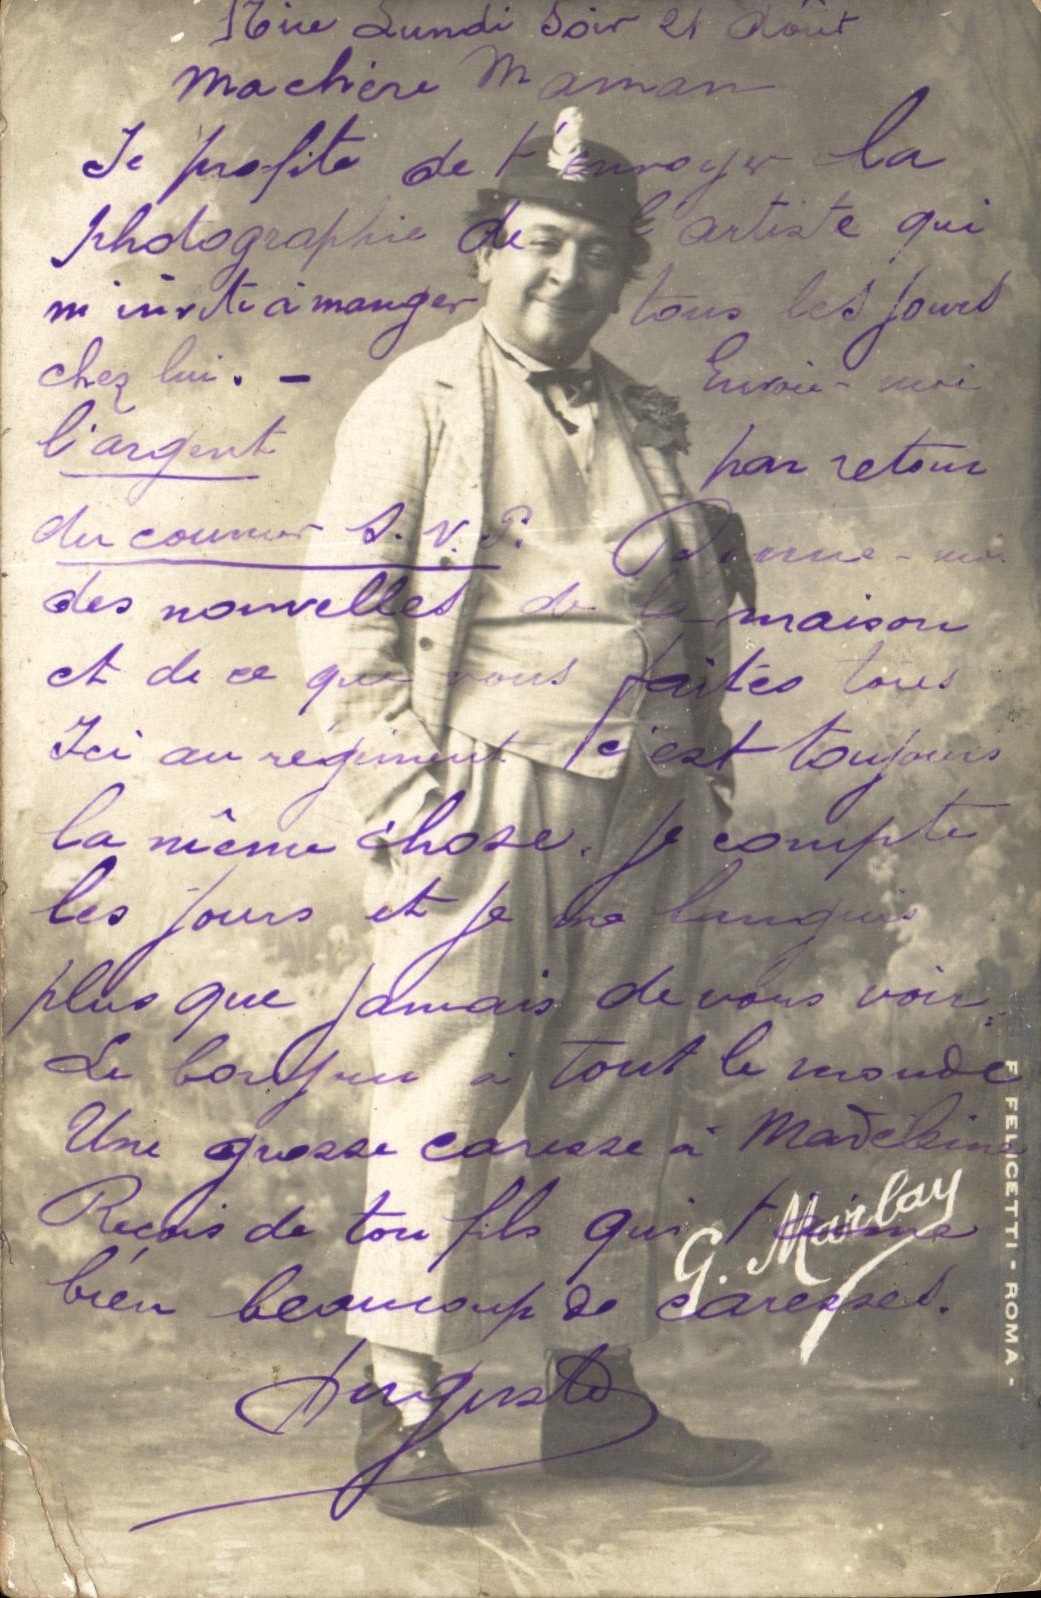 Nice Lundi Soir 21 Août
Ma chère Maman
Je profite de t'envoyer la
photographie de l'artiste qui
m'invite à manger tous les jours
chez lui. - Envoie-moi
l'argent par retour
du courrier S.V.P. Donne-moi
des nouvelles de la maison
et de ce que vous faites tous
Ici au régiment c'est toujours
la même chose. je compte
les jours et je me languis
plus que jamais de vous voir.
Le bonjour à tout le monde
Une grosse caresse à Madeleine
Reçois de ton fils qui t'aime
bien beaucoup de caresses.
Auguste
G. Marlay
F. FELICETTI - ROMA -